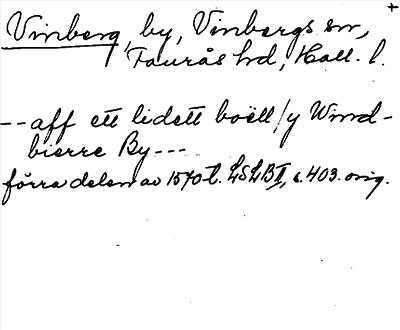 Vinberg, by, Vinbergs sn,
Faurås hd, Hall. l.
-- aff ett lidett boëll / y Wind-
bierre By ---
förra delen av 1570-t. LSLB II, s. 403. orig.